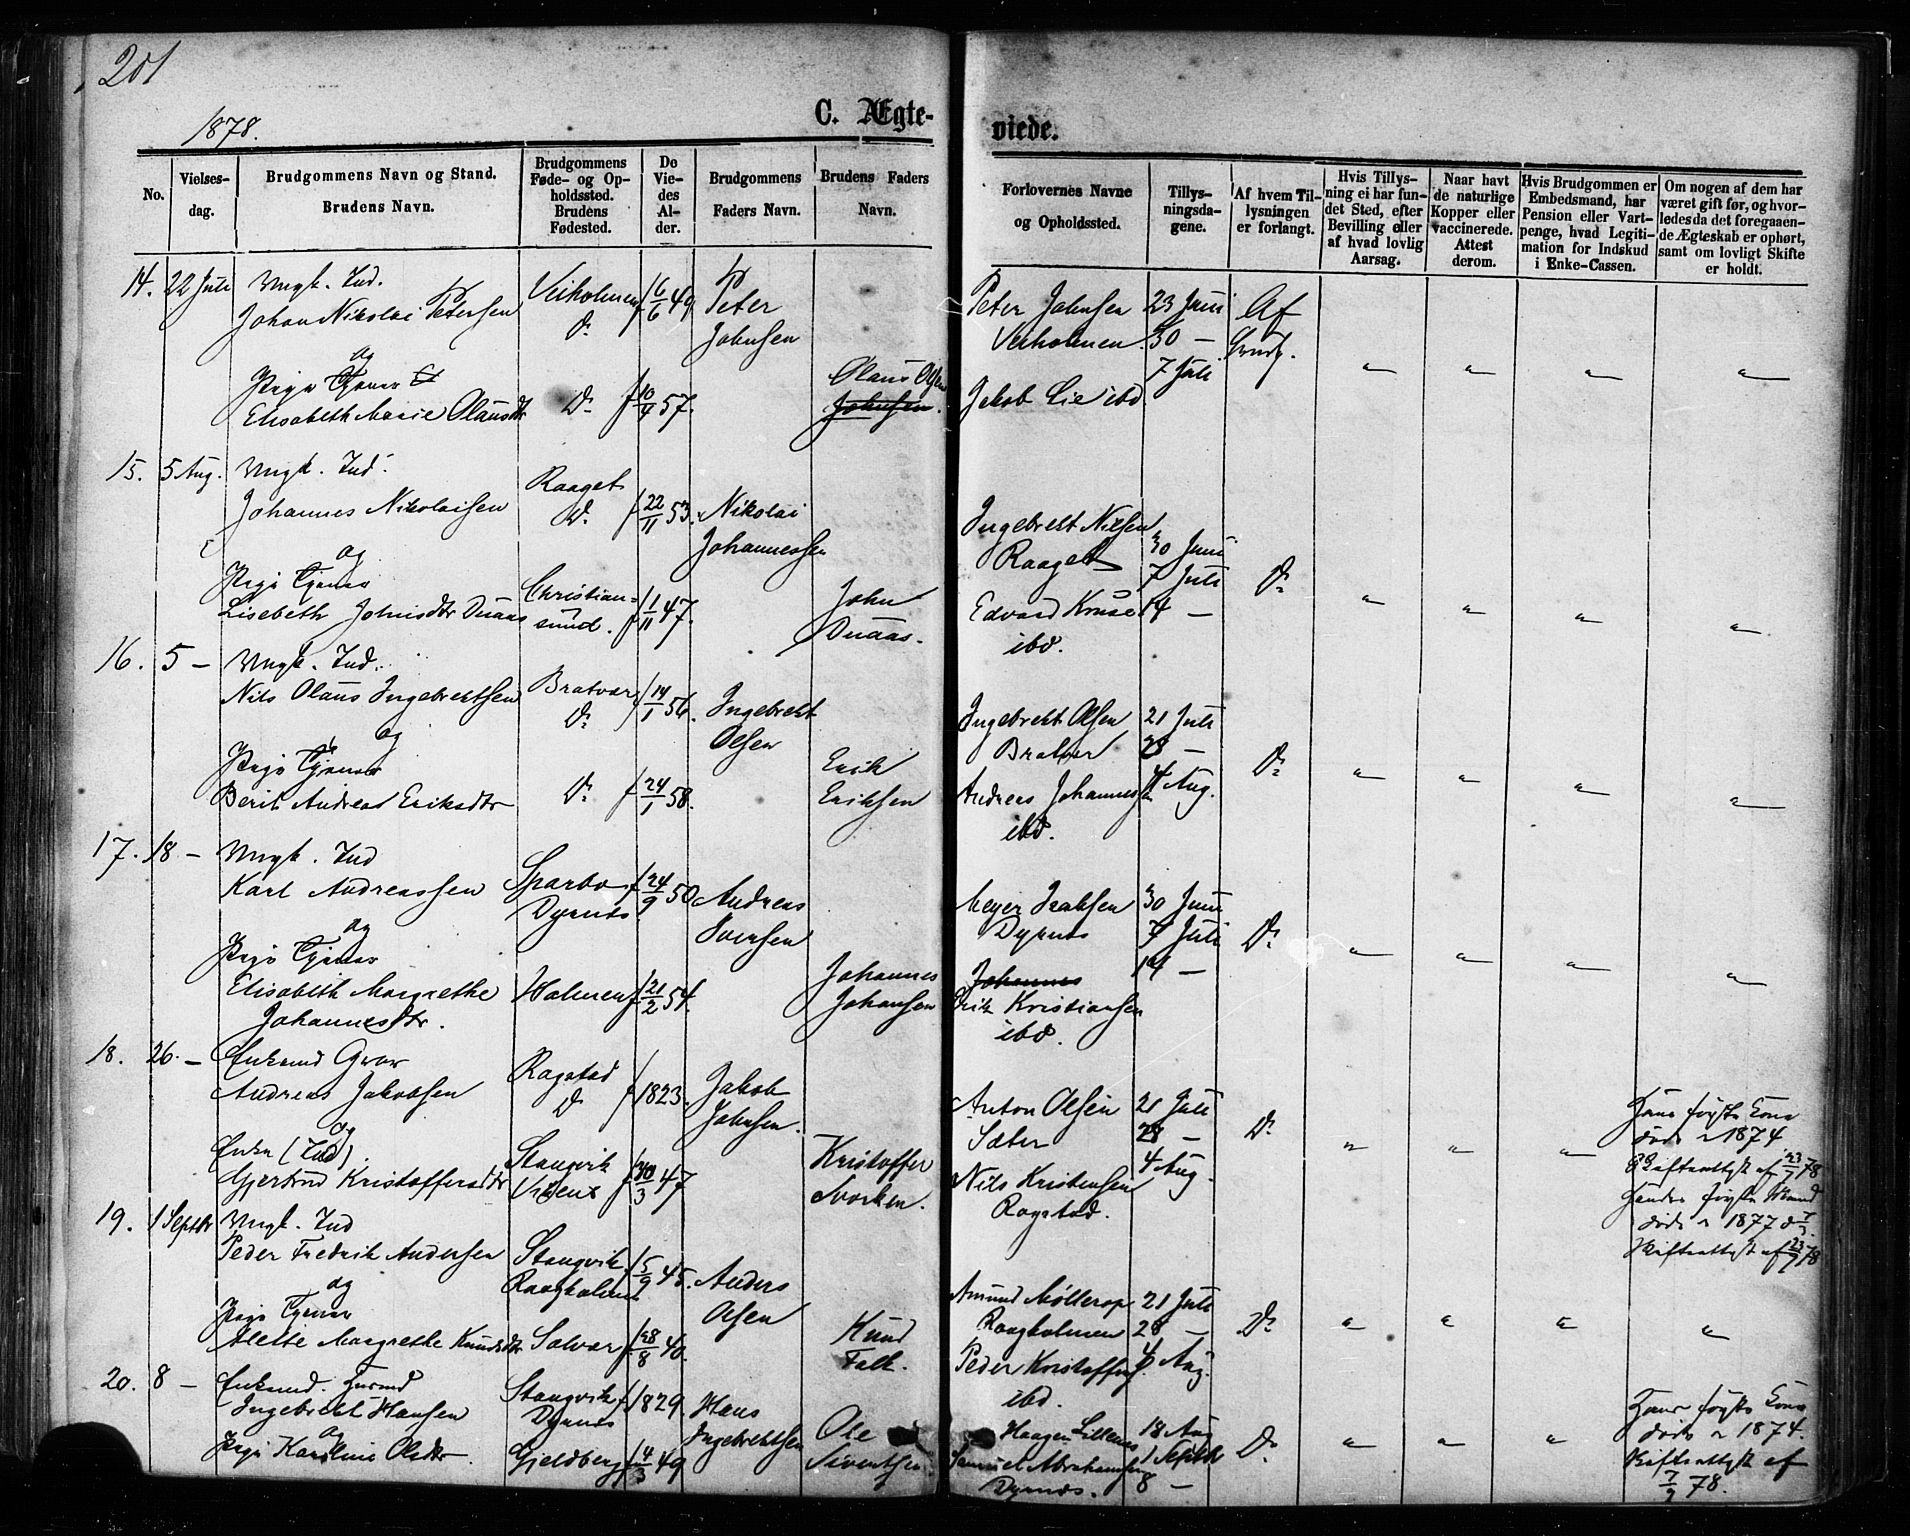 201
1878.
C. Ægte-
viede.
No.
Vielses-
dag.
Brudgommens Navn og Stand.
Brudens Navn.
Brudgommens
Føde- og Op-
holdssted.
Brudens
Fødested.
De
Vie-
des
Al-
der.
Brudgommens
Faders Navn.
Brudens Faders
Navn.
Forlovernes Navne
og Opholdssted.
Tillys-
ningsda-
gene.
Af hvem Til-
lysningen
er forlangt.
Hvis Tillys-
ning ei har fun-
det Sted, efter
Bevilling eller
af hvad lovlig
Aarsag.
Naar havt
de naturlige
Kopper eller
vaccinerede.
Attest
derom.
Hvis Brudgommen er
Embedsmand, har
Pension eller Vart-
penge, hvad Legiti-
mation for Indskud
i Enke-Cassen.
Om nogen af dem har
været gift før, og hvor-
ledes da det foregaaen-
de Ægteskab er ophørt,
samt om lovligt Skifte
er holdt.
14. 22 Juli Ungk. Ind. Veiholmen f 16/6 49 Peter Peter Johnsen 23 Juni Af
Johan Nikolai Petersen D. Johnsen Veiholmen 30 — Brudg.
og 7 Juli
Pige Tjener Olaus Olsen
Elisabeth Marie Olausdtr D. f 10/4 57. Johnsen. Jakob Lie ibd.
15. 5 Aug. Ungk. Ind. Raaget
Johannes Nikolaisen D. f 22/11 53. Nikolai Ingebrekt Nilsen
og Johannessen Raaget 30 Juni
Pige Tjener Christian- John 7 Juli D.
Lisebeth Johnsdtr sund. f 1/11 47. Edvard Kruse 14 —
ibd.
16. 5 — Ungk. Ind.
Nils Olaus Ingebrektsen Bratvær D. f 14/1 56. Ingebrekt Ingebrekt Olsen 21 Juli
og Olsen Bratvær 28 — D.
Pige Tjener Erik 4 Aug.
Berit Andrea Eriksdtr D. f 24/1 58. Eriksen Andreas Johannessen
ibd.
17. 18 — Ungk. Ind
Karl Andreassen Sparbo f 24/9 50 Andreas Meyer 30 Juni
og Dyrnes Svensen Dyrnes 7 Juli D.
Pige Tjener Johannes Johannes 14 —
Elisabeth Margrethe Holmen f 21/2 54. Johansen Erik Kristiansen
Johannesdtr. ibd.
18. 26. — Enkemd Rogstad
Andreas Jakobsen D. f 1823. Jakob Anton Olsen 21 Juli
og Johnsen. Sæter 28 — D.
Enke (Ind). Stangvik Kristoffer 4 Aug.
Gjertrud Kristoffersdtr f 47 Nils Kristensen
Rogstad.
Hans første Kone
døde 1874
Skifteattest af 23/7 78
Hendes første Mand
døde 1877
Skifteattest af 23/7 78
19. 1 Septbr Ungk. Ind
Peder Fredrik Andersen Stangvik f 5/9 45. Anders
og Raagholmen Olsen Amund 21 Juli
Pige Tjener Knud Raagholmen 28 — D.
Alette Margrethe Knudsdtr f 28/8 40. Falk. Peder 4 Aug.
ibd.
20. 8 — Enkemd. Stangvik f 1829 Hans
Ingebrekt Hansen Dyrnes Ingebrektsen Haagen 18 Aug
og Ole 1 Septbr D.
Pige Karoline Olsdtr. Gjeldberg f 4/3 49 Sivertsen. Samuel Abrahamsen 8 —
Dyrnæs.
Hans første Kone
døde 1874.
Skifteattest af
78.